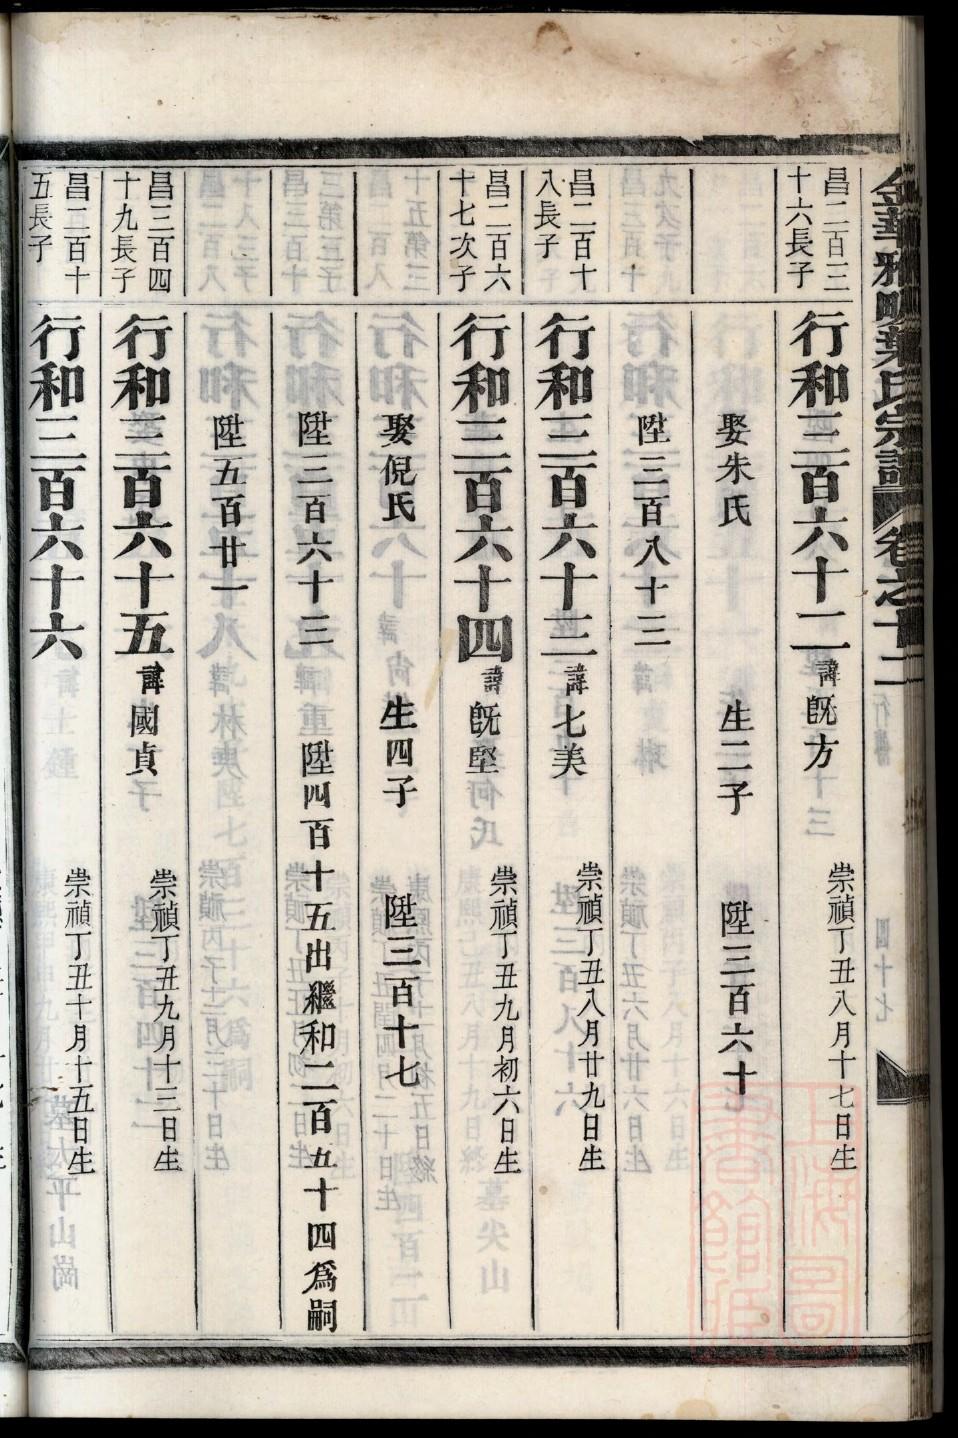 金華雅畈葉氏宗譜 卷之十二
昌二百二
十六長子
行和三百六十二 諱旣方 崇禎丁丑八月十七日生
娶朱氏 生二子 陞三百六十七
陞三百八十三
昌二百十
八長子
行和三百六十三 諱七美 崇禎丁丑八月廿九日生
昌二百六
十七次子
行和三百六十四 諱旣堅 崇禎丁丑九月初六日生
娶倪氏 生四子 陞三百十七
陞三百六十三 陞四百十五出繼和二百五十四爲嗣
陞五百廿一
昌三百四
十九長子
行和三百六十五 諱國貞 崇禎丁丑九月十三日生
昌二百十
五長子
行和三百六十六 崇禎丁丑十月十五日生